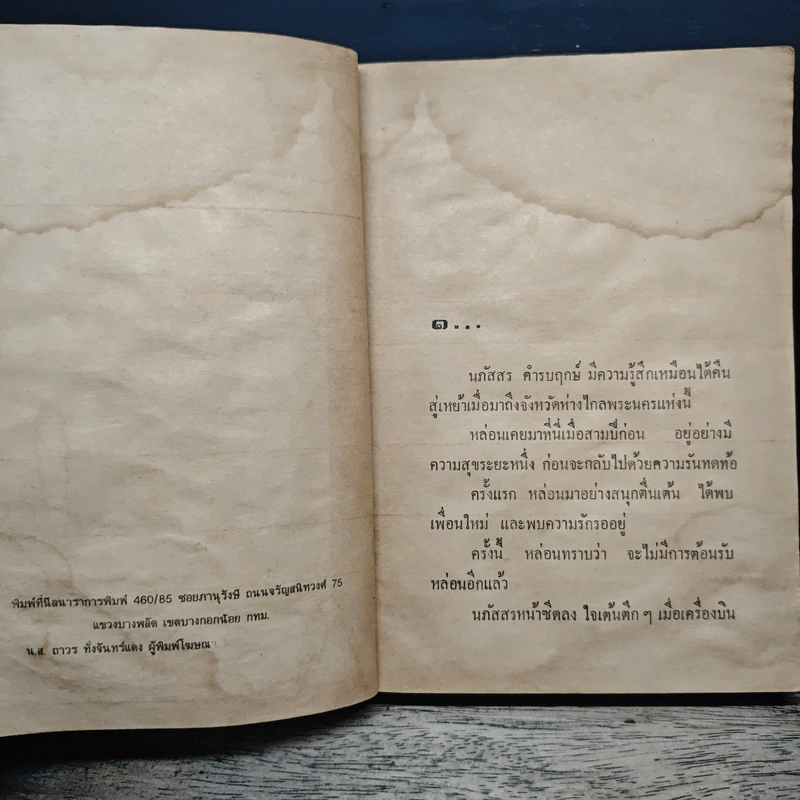 พิมพ์ที่นีลนาราการพิมพ์ 460/85 ซอยภานุรังษี ถนนจรัญสนิทวงศ์ 75
แขวงบางพลัด เขตบางกอกน้อย กทม.
น.ส. ถาวร ทั่งจันทร์แดง ผู้พิมพ์โฆษณา
๑...
นภัสสร คำรบฤกษ์ มีความรู้สึกเหมือนได้คืน
สู่เหย้าเมื่อมาถึงจังหวัดห่างไกลพระนครแห่งนี้
หล่อนเคยมาที่นี่เมื่อสามปีก่อน อยู่อย่างมี
ความสุขระยะหนึ่ง ก่อนจะกลับไปด้วยความรันทดท้อ
ครั้งแรก หล่อนมาอย่างสนุกตื่นเต้น ได้พบ
เพื่อนใหม่ และพบความรักรออยู่
ครั้งนี้ หล่อนทราบว่า จะไม่มีการต้อนรับ
หล่อนอีกแล้ว
นภัสสรหน้าซีดลง ใจเต้นตึก ๆ เมื่อเครื่องบิน